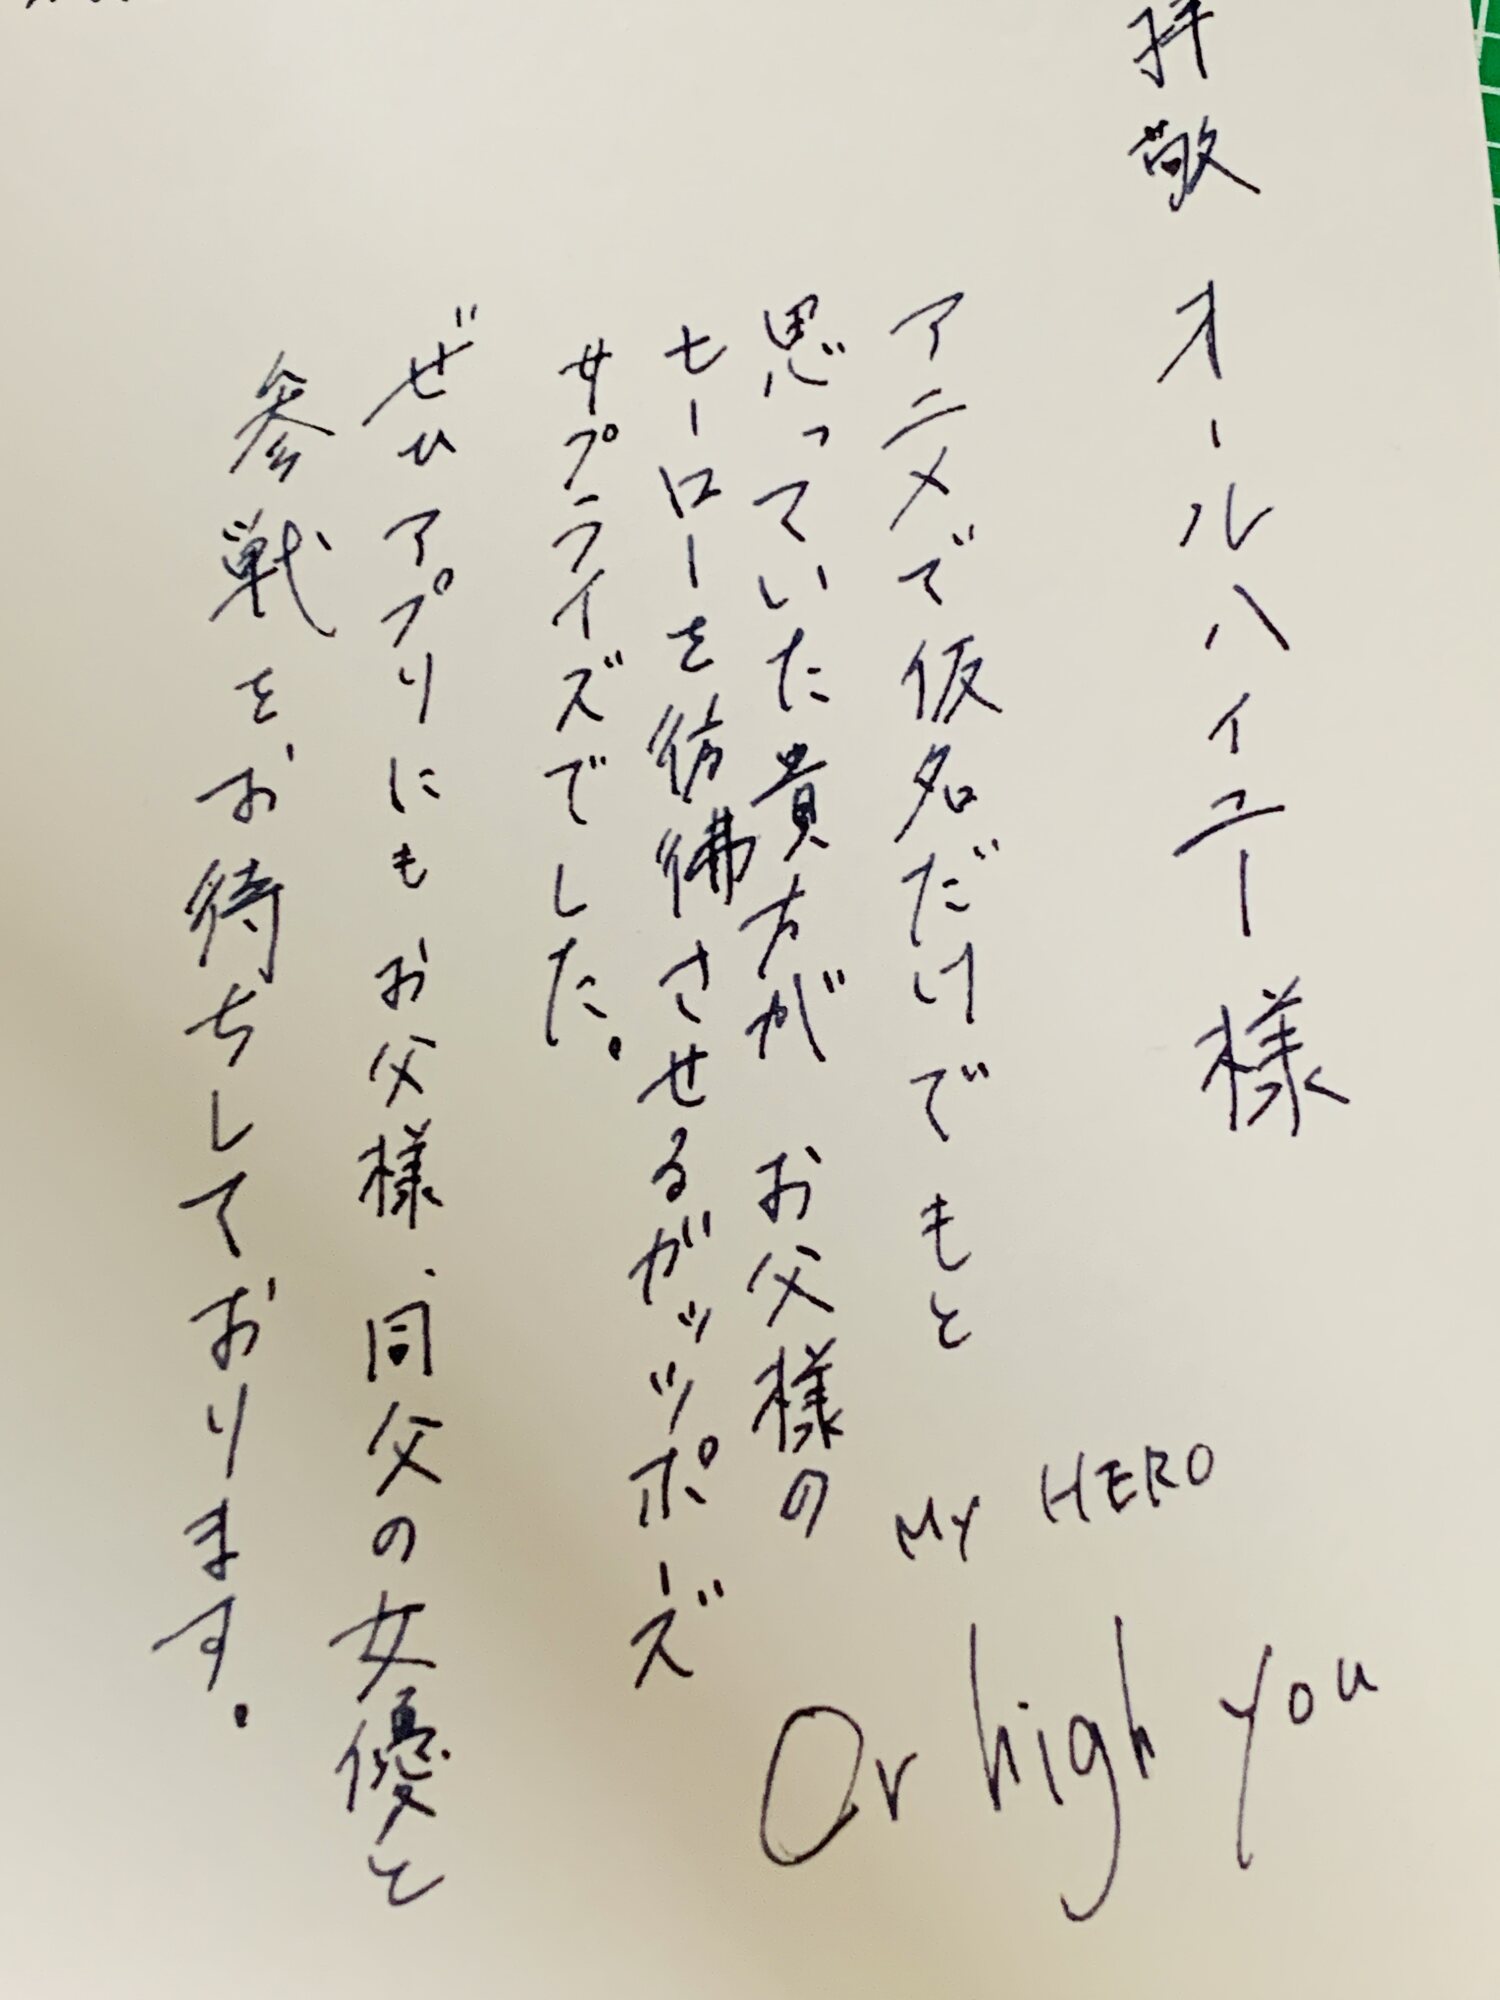 拝敬 オールハイユー 様
アニメで仮名だけでもと
思っていた貴方が お父様の
セーローを彷彿させるガッツポーズ
サプライズでした。
ぜひアプリにもお父様、同父の女優と
参戦をお待ちしております。
MY HERO
Or high you